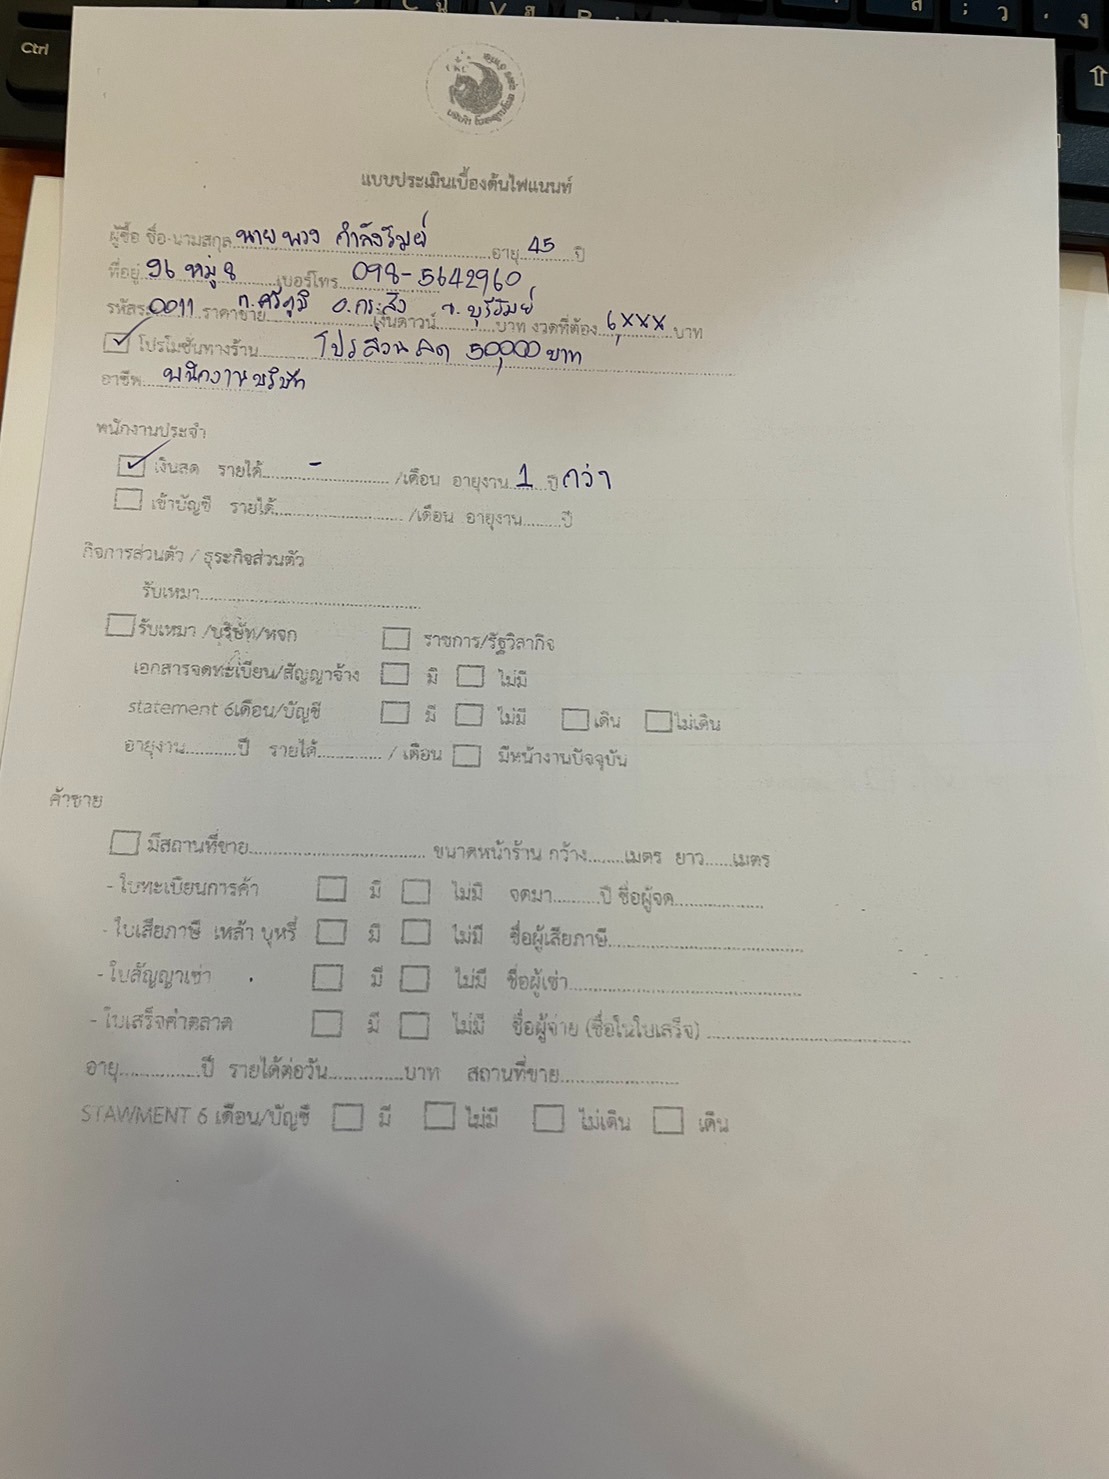 แบบประเมินเบื้องต้นไฟแนนท์
ผู้ซื้อ ชื่อ-นามสกุล นายพวง กำลังรัมย์ อายุ 45 ปี
ที่อยู่ 96 หมู่ 8 เบอร์โทร 098-5642960
ต.ศรีภูมิ อ.กระสัง จ.บุรีรัมย์
รหัสรถ 0011 ราคาขาย เงินดาวน์ บาท งวดที่ต้อง 6,xxx บาท
โปรโมชั่นทางร้าน โปรส่วนลด 50,000 บาท
อาชีพ พนักงานบริษัท
พนักงานประจำ
เงินสด รายได้ - /เดือน อายุงาน 1 ปี กว่า
เข้าบัญชี รายได้ /เดือน อายุงาน ปี
กิจการส่วนตัว / ธุระกิจส่วนตัว
รับเหมา
รับเหมา /บริษัท/หจก ราชการ/รัฐวิสากิจ
เอกสารจดทะเบียน/สัญญาจ้าง มี ไม่มี
statement 6เดือน/บัญชี มี ไม่มี เดิน ไม่เดิน
อายุงาน ปี รายได้ / เดือน มีหน้างานปัจจุบัน
ค้าขาย
มีสถานที่ขาย ขนาดหน้าร้าน กว้าง เมตร ยาว เมตร
- ใบทะเบียนการค้า มี ไม่มี จดมา ปี ชื่อผู้จด
- ใบเสียภาษี เหล้า บุหรี่ มี ไม่มี ชื่อผู้เสียภาษี
- ใบสัญญาเช่า มี ไม่มี ชื่อผู้เช่า
- ใบเสร็จค่าตลาด มี ไม่มี ชื่อผู้จ่าย (ชื่อในใบเสร็จ)
อายุ ปี รายได้ต่อวัน บาท สถานที่ขาย
STAWMENT 6 เดือน/บัญชี มี ไม่มี ไม่เดิน เดิน
Ctrl